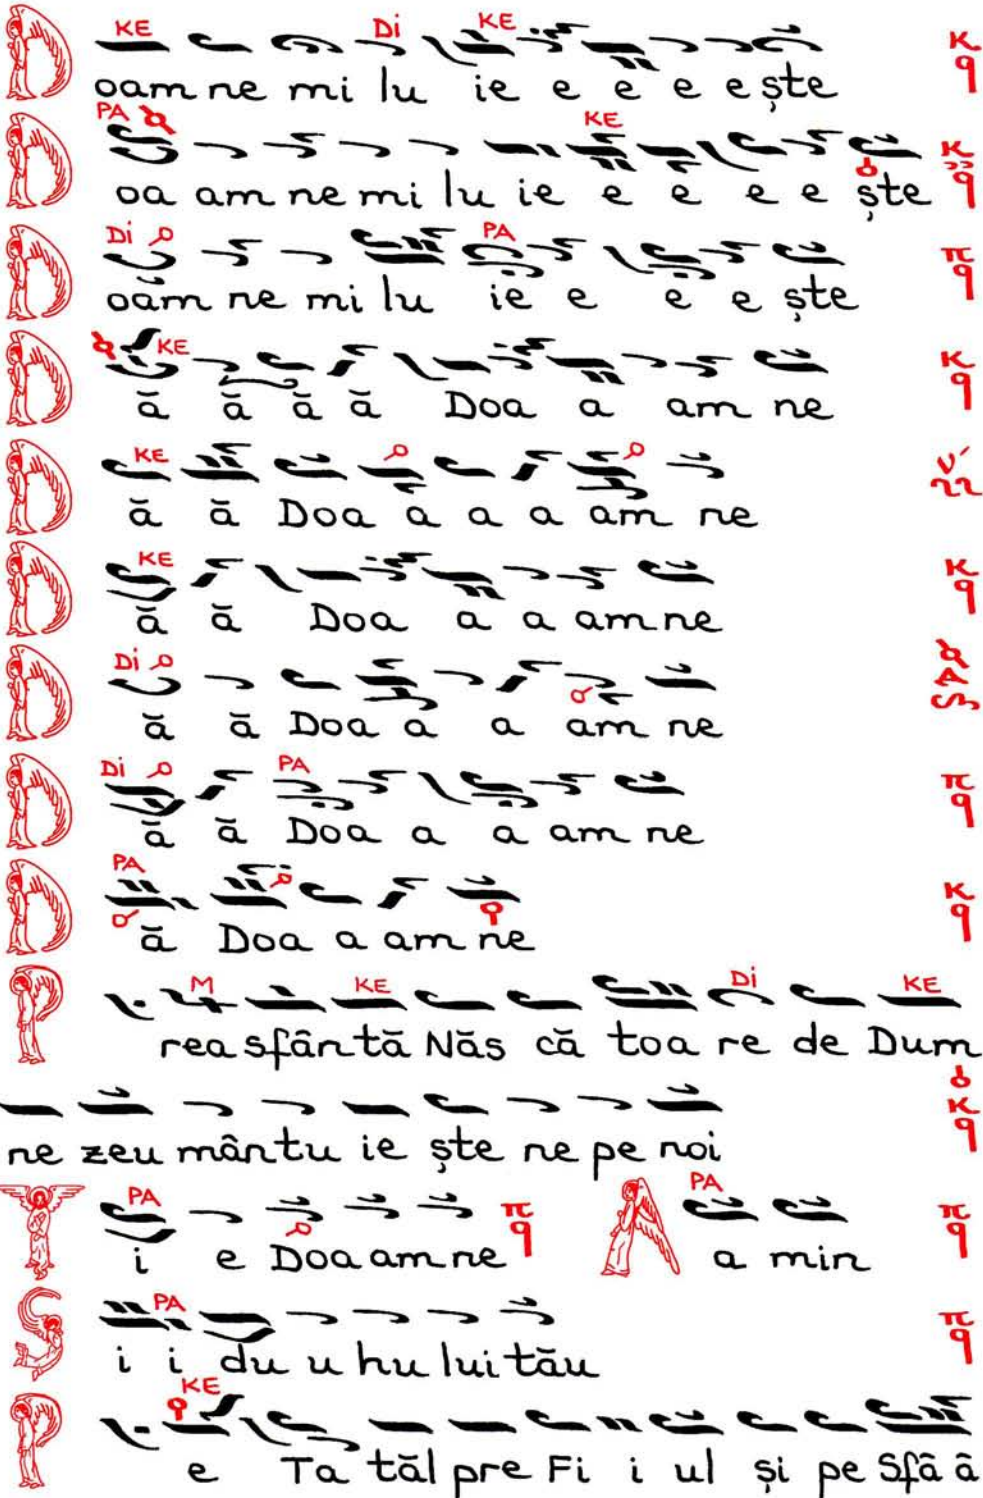 KE Di KE
Doam ne mi lu ie e e e e ște
PA KE
Doa am ne mi lu ie e e e e ște
Di PA
Doam ne mi lu ie e e e ște
KE
Dă ă ă ă Doa a am ne
KE
Dă ă Doa a a a am ne
KE
Dă ă Doa a a am ne
Di
Dă ă Doa a a am ne
Di PA
Dă ă Doa a a am ne
PA
Dă Doa a am ne
M KE Di KE
Prea sfântă Năs că toa re de Dum
ne zeu mântu ie ște ne pe noi
PA PA
Ți e Doa am ne A a min
PA
Și i du u hu lui tău
KE
Pe Ta tăl pre Fi i ul și pe Sfâ â